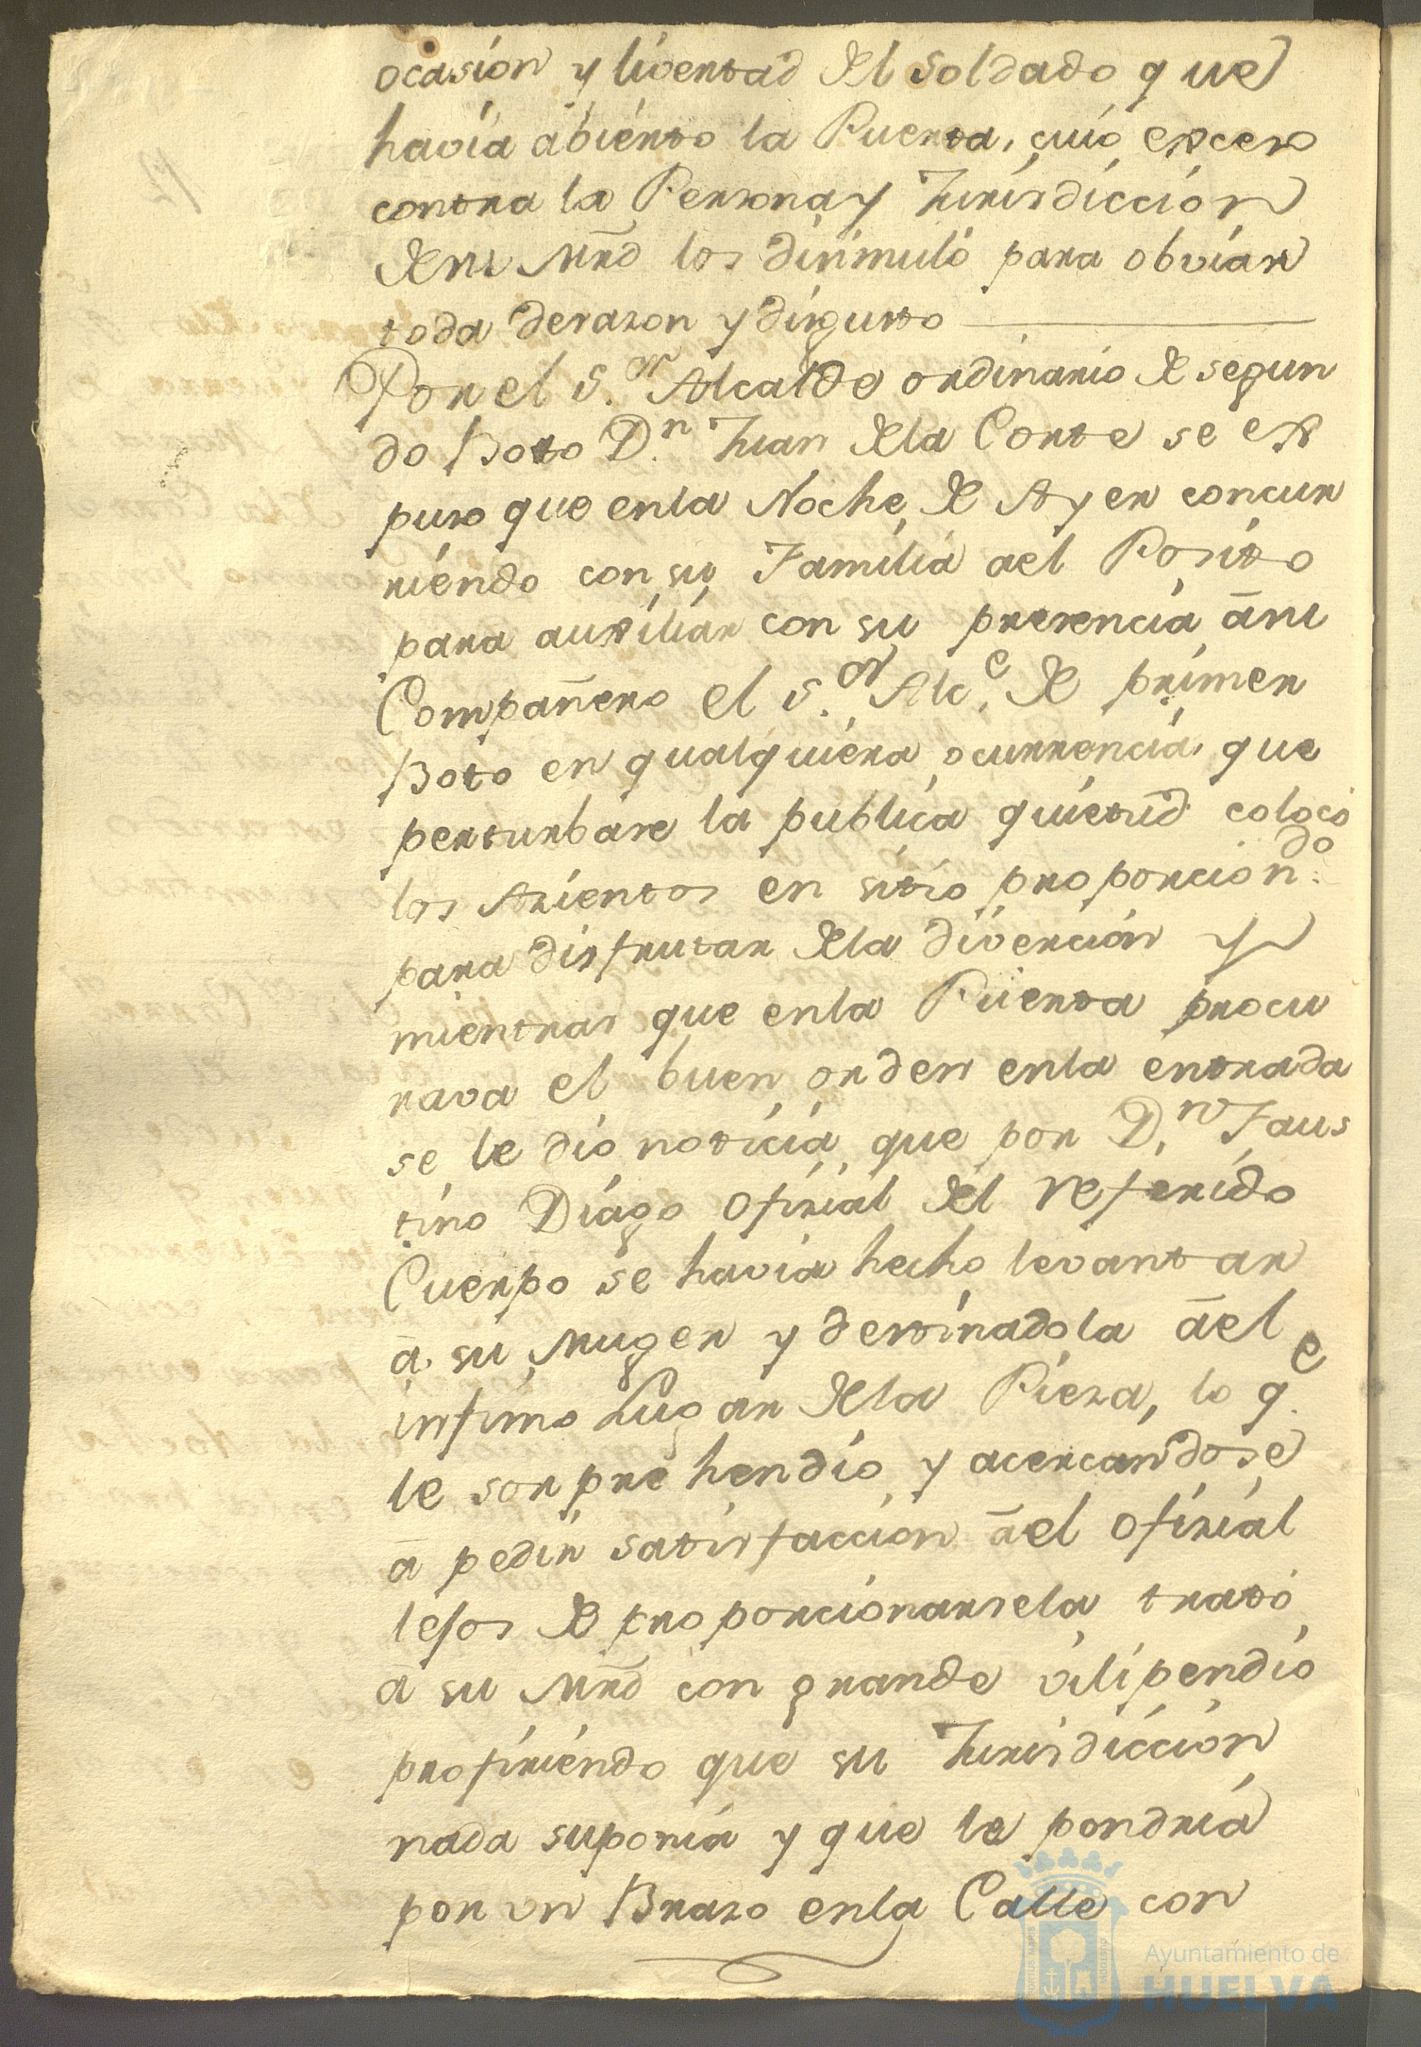 ocasion y livertad del Soldado que
havia abierto la Puerta, cuio exceso
contra la Persona y Jurisdiccion
de su Mrd los disimuló para obviar
toda desazon y disgusto
Por el S.or Alcalde ordinario de segun
do Boto D.n Juan de la Corte se ex
puso que en la Noche de Ayer concur
riendo con su Familia ael Posito
para auxiliar con su presencia á su
Compañero el S.or Alc.e de primer
Boto en qualquiera ocurrencia que
perturbase la publica quietud colocó
los Asientos en sitio proporcion.do
para disfrutar de la divercion y
mientras que en la Puerta procu
rava el buen orden en la entrada
se le dio noticia que por D.n Faus
tino Diago Ofizial del referido
Cuerpo se havia hecho levantar
á su Muger y destinadola áel
infimo Lugar de la Pieza, lo q.e
le sorprehendio y acercandose
á pedir satisfaccion áel Ofizial
lejos de proporcionarsela trató
á su Mrd con grande vilipendio
profiriendo que su Jurisdiccion
nada suponia y que le pondria
por un Brazo en la Calle con
Ayuntamiento de
HUELVA